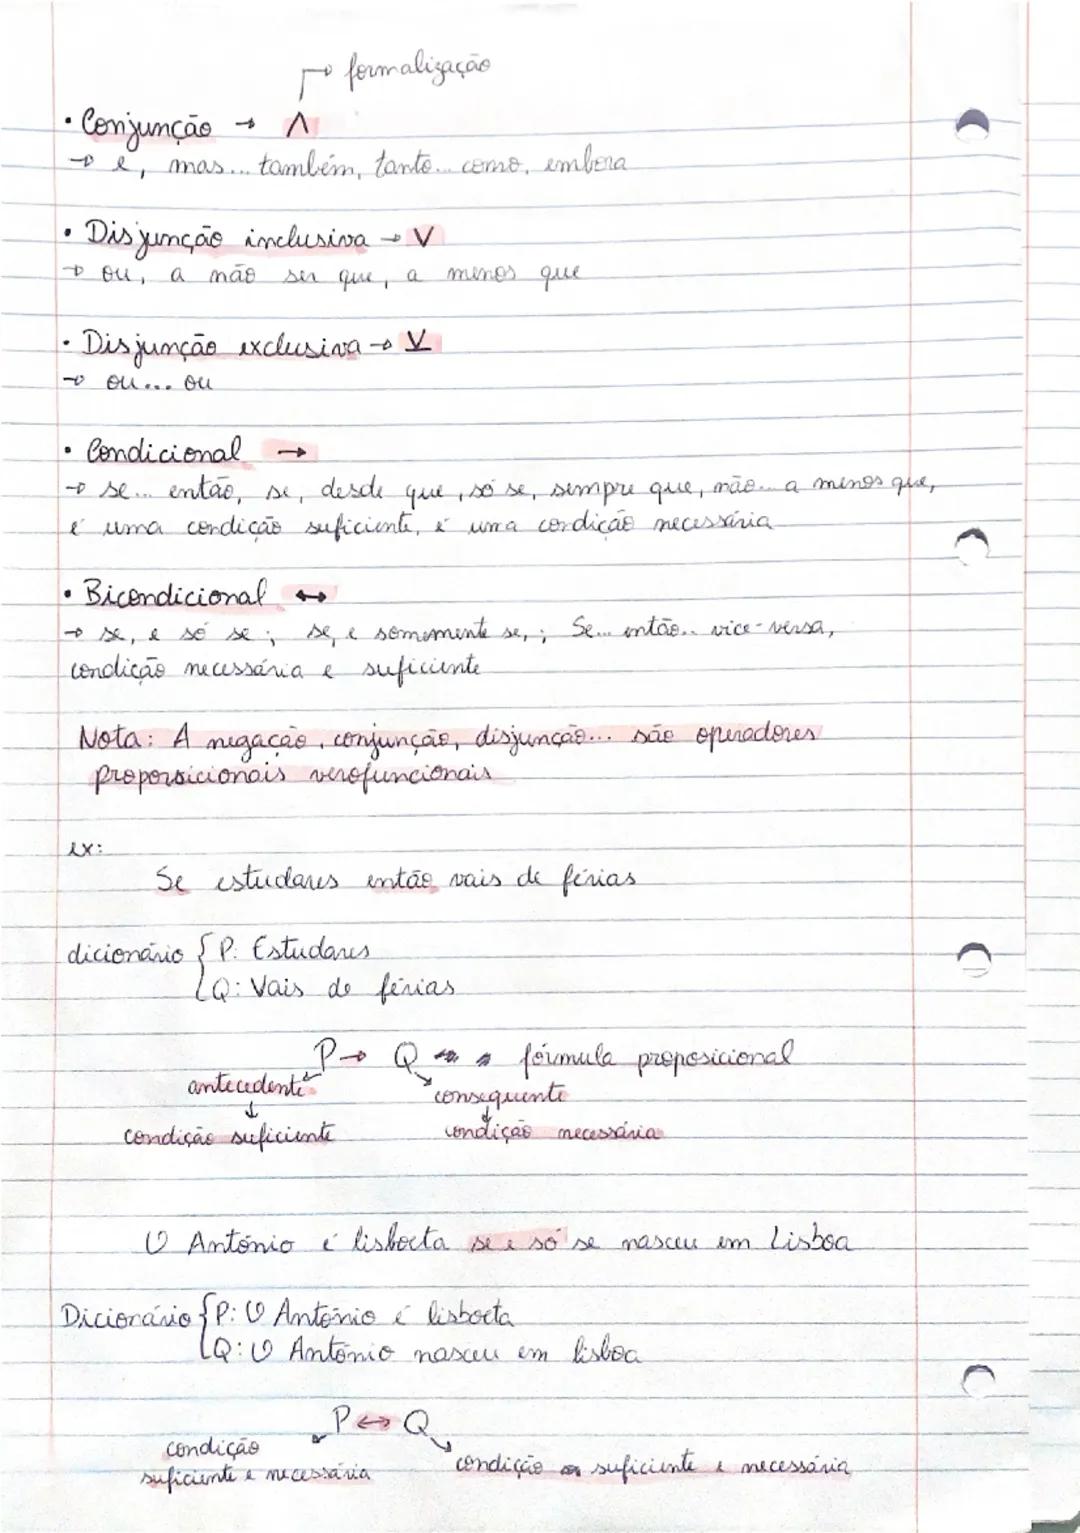 → formalização
• Conjunção → ∧
→ e, mas... também, tanto... como, embora
• Disjunção inclusiva → V
→ ou, a não ser que, a menos que
• Disjunção exclusiva → V̲
→ ou... ou
• Condicional →
→ se... então, se, desde que, só se, sempre que, não... a menos que,
é uma condição suficiente, é uma condição necessária
• Bicondicional ↔
→ se, e só se ; se, e somemente se, ; Se... então.. vice-versa,
condição necessária e suficiente
Nota: A negação, conjunção, disjunção... são operadores
proporsicionais verofuncionais
ex:
Se estudares então vais de férias
dicionário { P: Estudares
Q: Vais de férias
P → Q → fórmula proposicional
antecedente consequente
↓ ↓
condição suficiente condição necessária
O António é lisboeta se e só se nasceu em Lisboa
Dicionário { P: O António é lisboeta
Q: O António nasceu em lisboa
P ↔ Q
condição
suficiente e necessária condição suficiente e necessária